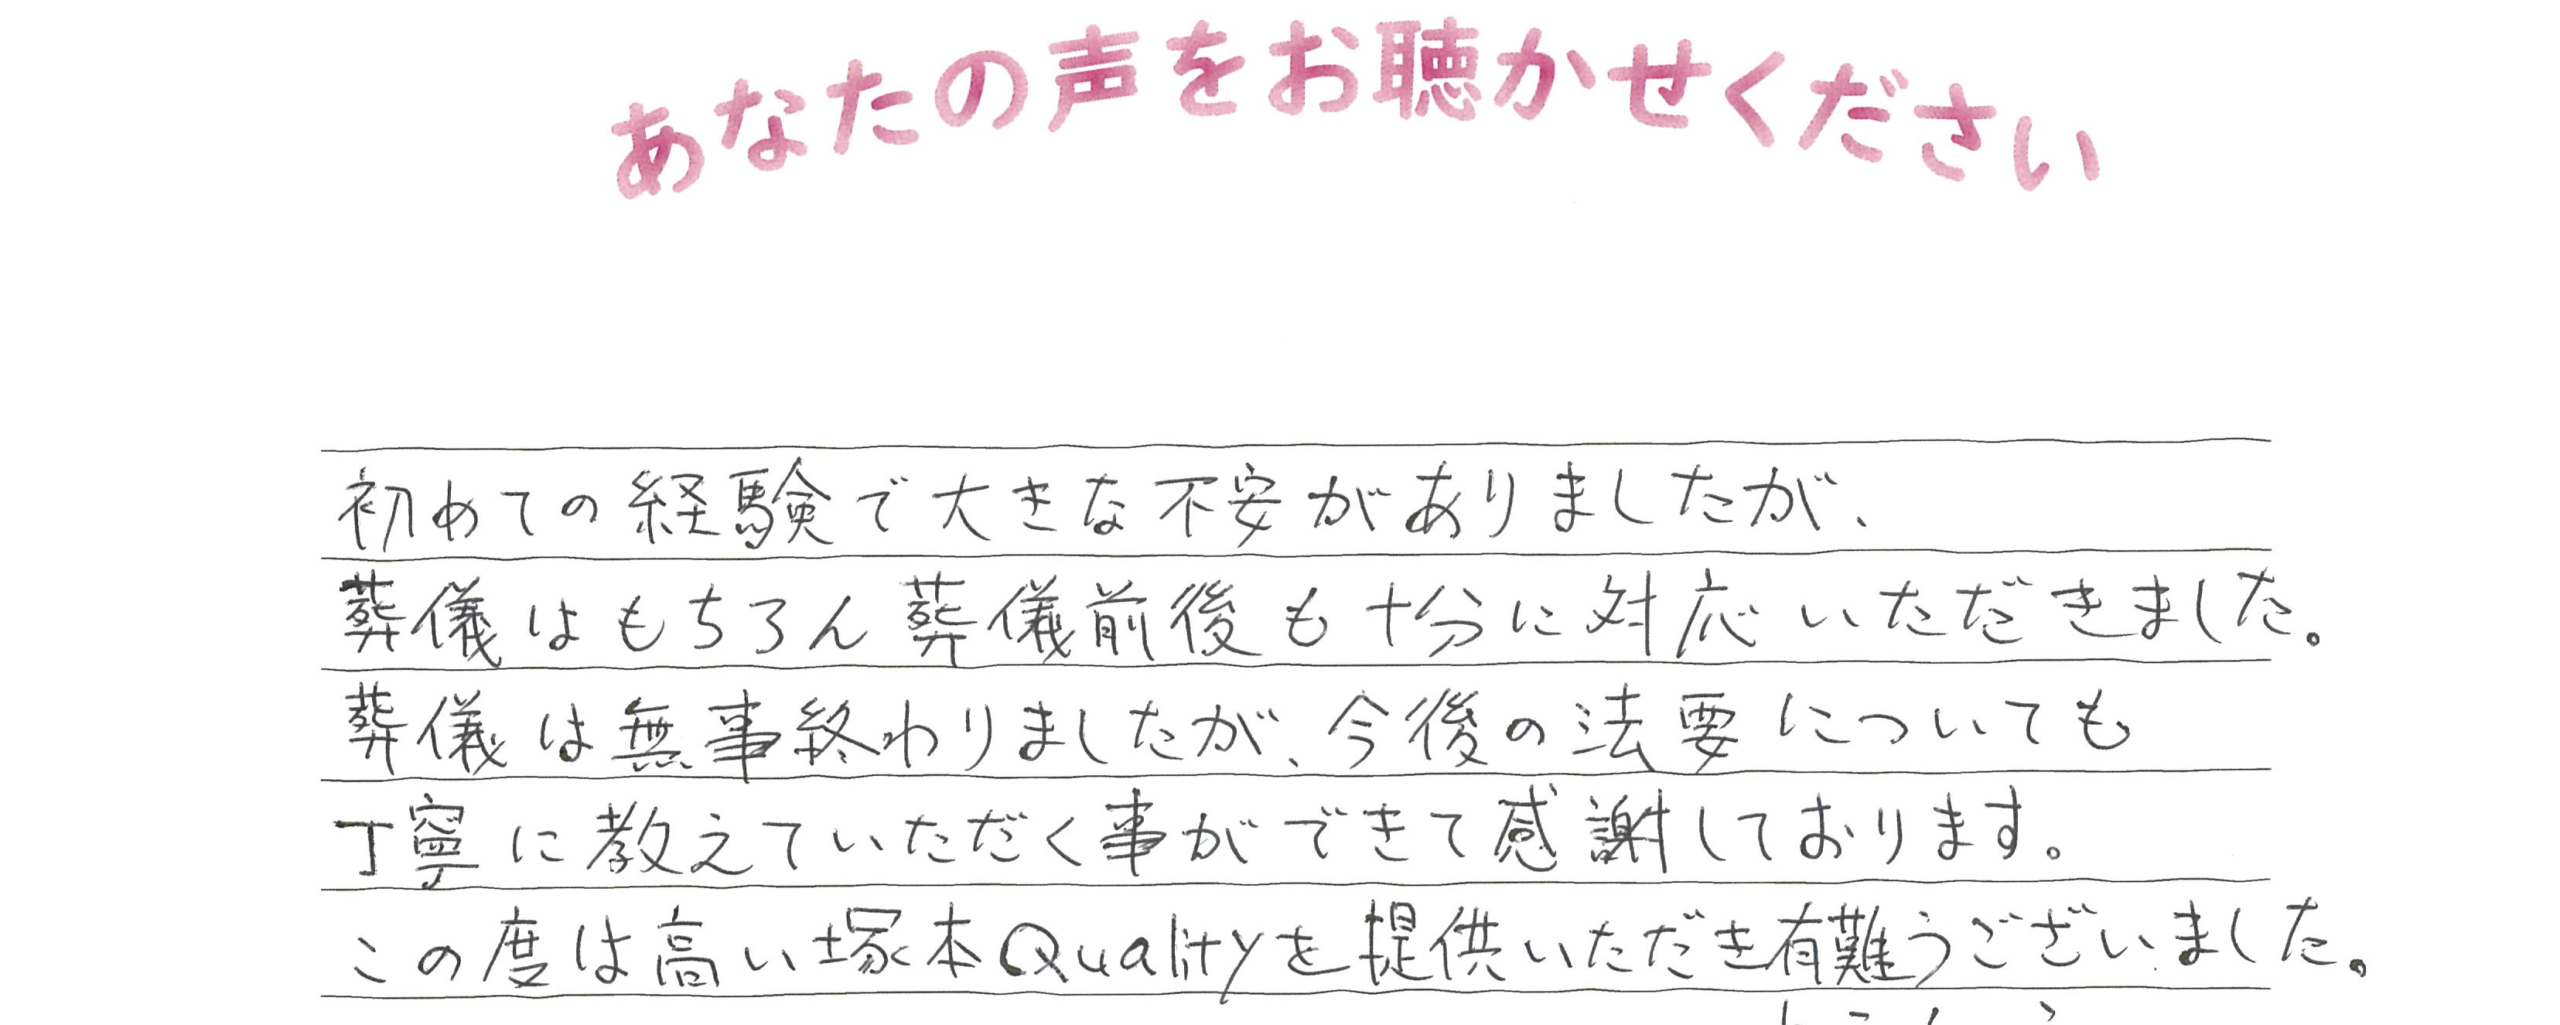 あなたの声をお聴かせください
初めての経験で大きな不安がありましたが、
葬儀はもちろん葬儀前後も十分に対応いただきました。
葬儀は無事終わりましたが、今後の法要についても
丁寧に教えていただく事ができて感謝しております。
この度は高い塚本Qualityを提供いただき有難うございました。